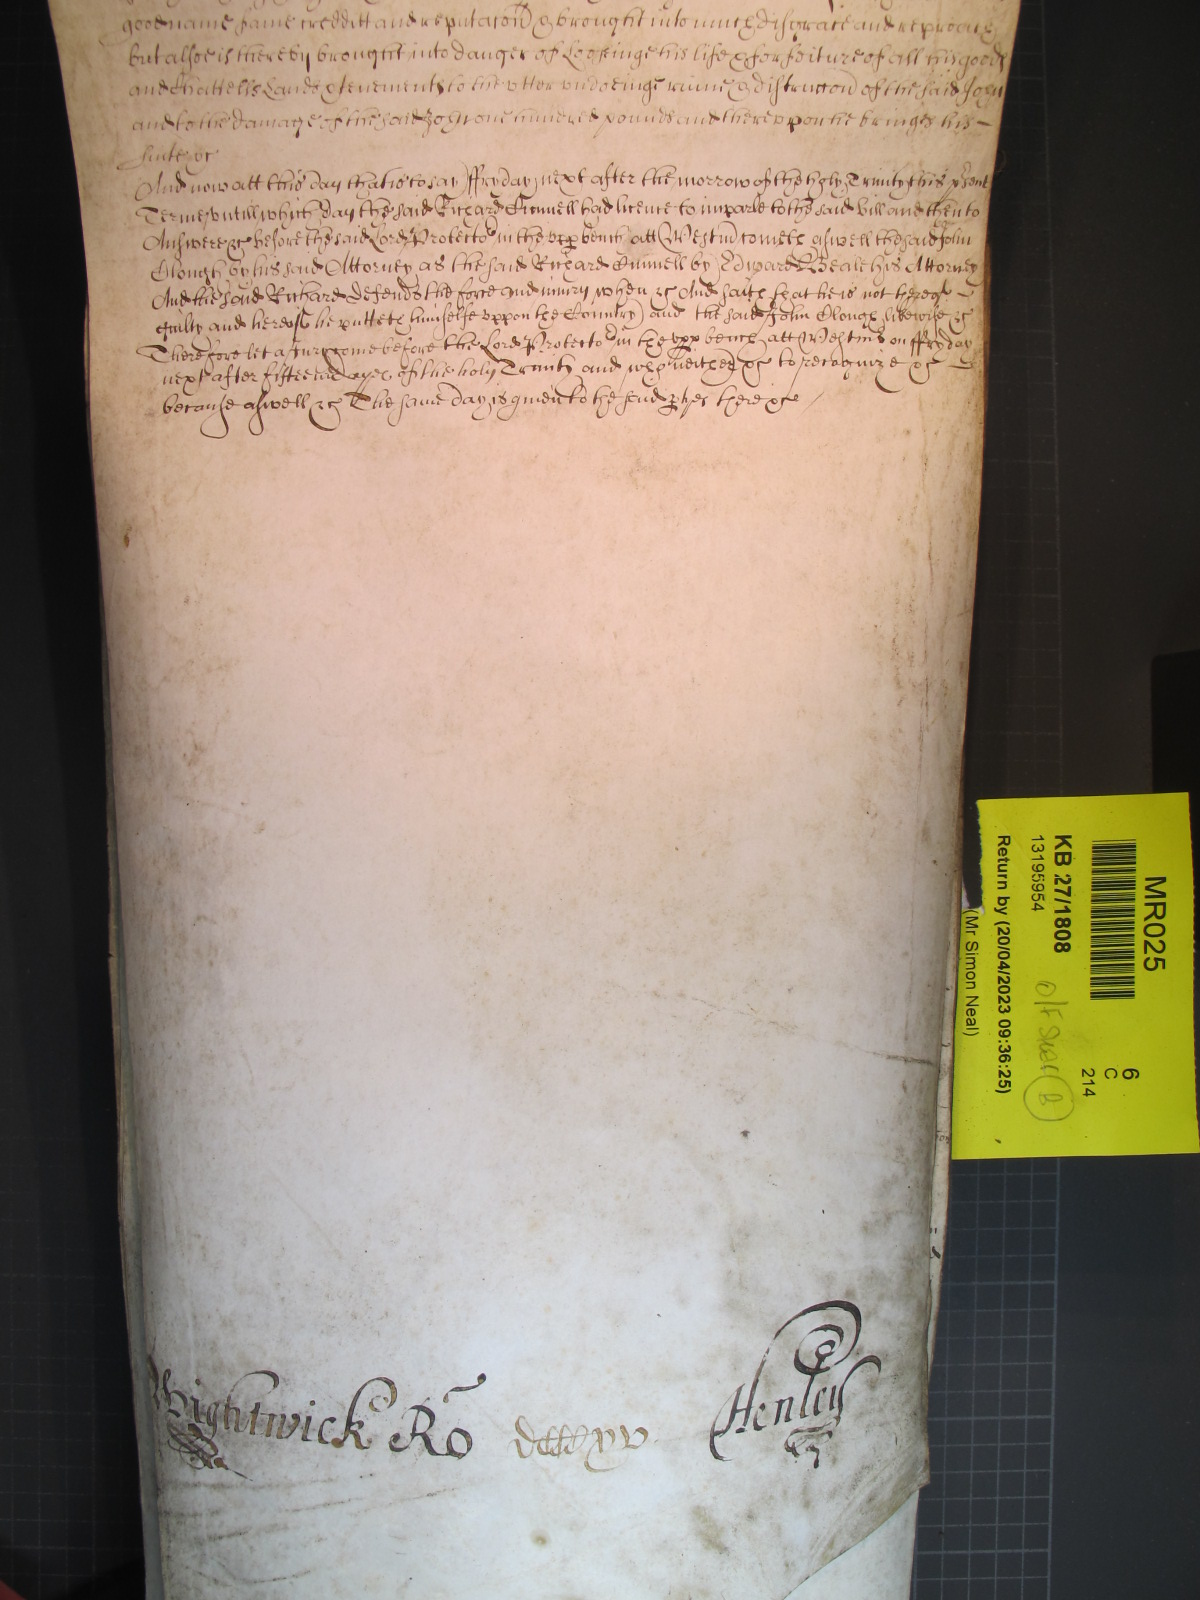 good name fame creditt and reputacon & brought into much disgrace and reproach
but alsoe is thereby brought into danger of Loosinge his life & forfeiture of all his goods
and Chattells Lands & tenements to the utter undoeinge ruine & distruccon of the said John
and to the damage of the said John one hundred pounds and thereuppon he brings his
suite &c
And now att this day that is to say ffryday next after the morrow of the holy Trinity this present
Terme untill which day the said Richard Cunnell had licence to imparle to the said bill and then to
Answere &c before the said Lord Protector in the upp bench att Westm cometh aswell the said John
Clough by his said Attorney as the said Richard Cunnell by Edward Beale his Attorney
And the said Richard defends the force and injury when &c And saith that he is not thereof
guilty and hereof he putteth himselfe uppon the Country and the said John Clough likewise &c
Therefore let a Jury come before the Lord Protector in the upp bench att Westm on ffryday
next after fifteene dayes of the holy Trinity and who neither &c to recognize &c
because aswell &c The same day is given to the said ptyes there &c
Wightwick Ro dcccxv Henley
MR025
6
C
214
KB 27/1808
13195954
Return by (20/04/2023 09:36:25)
(Mr Simon Neal)